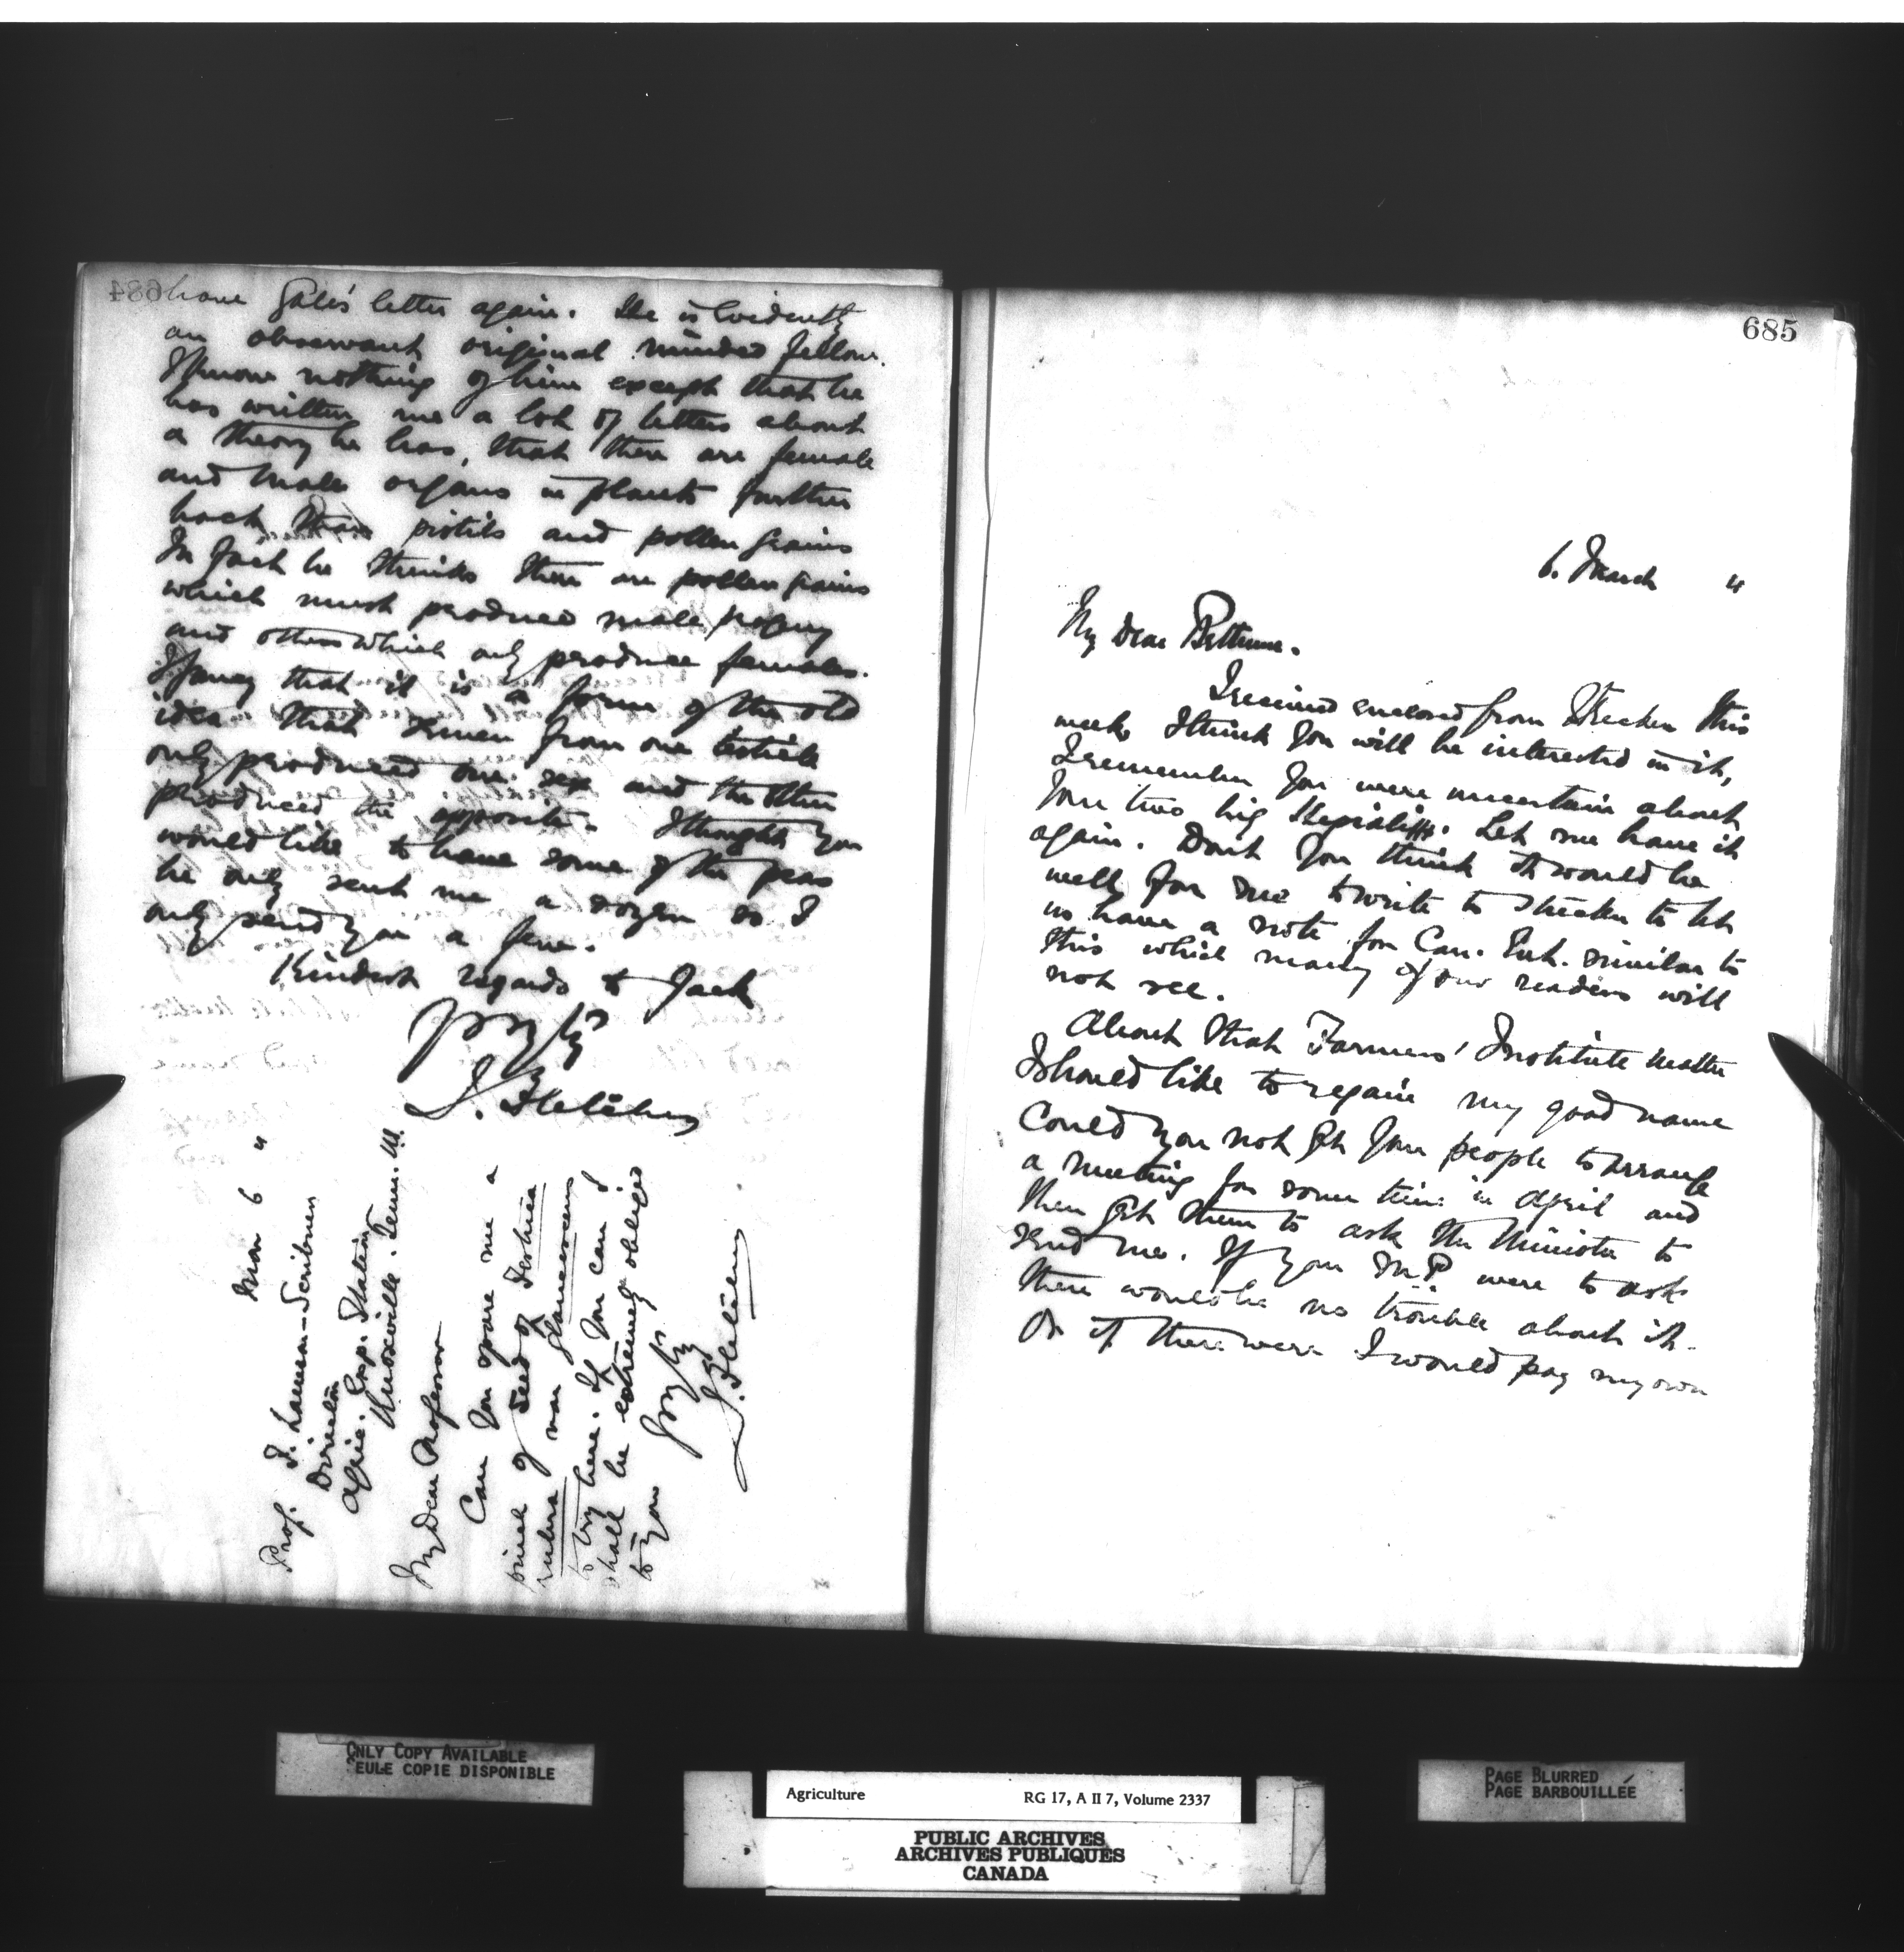 684
have Gale's letter again. He is evidently
an observant original minded fellow.
I know nothing of him except that he
has written me a lot of letters about
a theory he has, that there are female
and male organs in plants further
back than pistils and pollen grains
In fact he thinks there are pollen grains
which must produce male progeny
and others which only produce females.
I fancy that it is a form of the old
idea that semen from one testicle
only produced one sex and the other
produced the opposite. I thought you
would like to have some of the peas
he only sent me a dozen so I
only send you a few.
Kindest regards to Jack
J. Fletcher
Mar 6 "
Prof. F. Lamson-Scribner
Director
Agric. Exp. Station
Knoxville. Tenn.
My Dear Professor
Can you spare me a
pinch of seed of Festuca
rubra var glaucescens
to try here. If you can I
shall be extremely obliged
to you
J. Fletcher
685
6. March "
My Dear Bethune.
I received enclosed from Strecker this
week I think you will be interested in it,
I remember you were uncertain about
your two big Hepialids. Let me have it
again. Dont you think it would be
well for me to write to Strecker to let
us have a note for Can. Ent. similar to
this which many of our readers will
not see.
About that Farmers' Institute matter
I should like to regain my good name
Could you not get your people to arrange
a meeting for some time in April and
then get them to ask the Minister to
send me. If your M.P. were to ask
there would be no trouble about it.
Or if there were I would pay my own
ONLY COPY AVAILABLE
SEULE COPIE DISPONIBLE
Agriculture RG 17, A II 7, Volume 2337
PUBLIC ARCHIVES
ARCHIVES PUBLIQUES
CANADA
PAGE BLURRED
PAGE BARBOUILLÉE